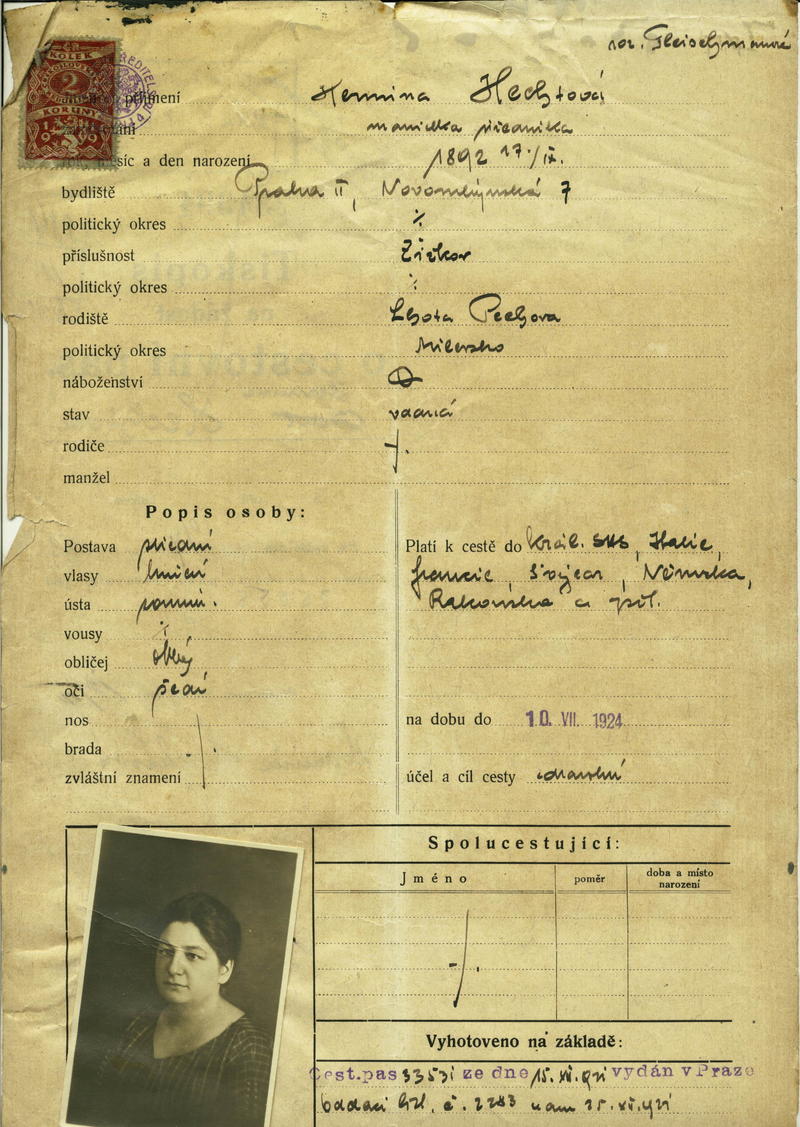 roz. Fleischmanová
KOLEK
2
KORUNY
1919
příjmení Hermina Hechtová
manželka úředníka
měsíc a den narození 1892 17./IX.
bydliště Praha II, Novomlýnská 7
politický okres ·/.
příslušnost Žižkov
politický okres ·/.
rodiště Lhota Pechova
politický okres
náboženství
stav vdaná
rodiče ·/.
manžel
Popis osoby:
Postava střední
Platí k cestě do král. SHS, Italie,
vlasy hnědé
Francie, Švýcar, Německa,
ústa souměr.
Rakouska a zpět.
vousy ·/.
obličej oblý
oči šedé
nos
na dobu do 10. VII. 1924
brada ·/.
zvláštní znamení
účel a cíl cesty zdravotní
Spolucestující:
Jméno poměr doba a místo narození
·/.
Vyhotoveno na základě:
Cest.pas 33531 ze dne 15. XII. 921 vydán v Praze
oddací list č. 2283 z 25. XII. 921